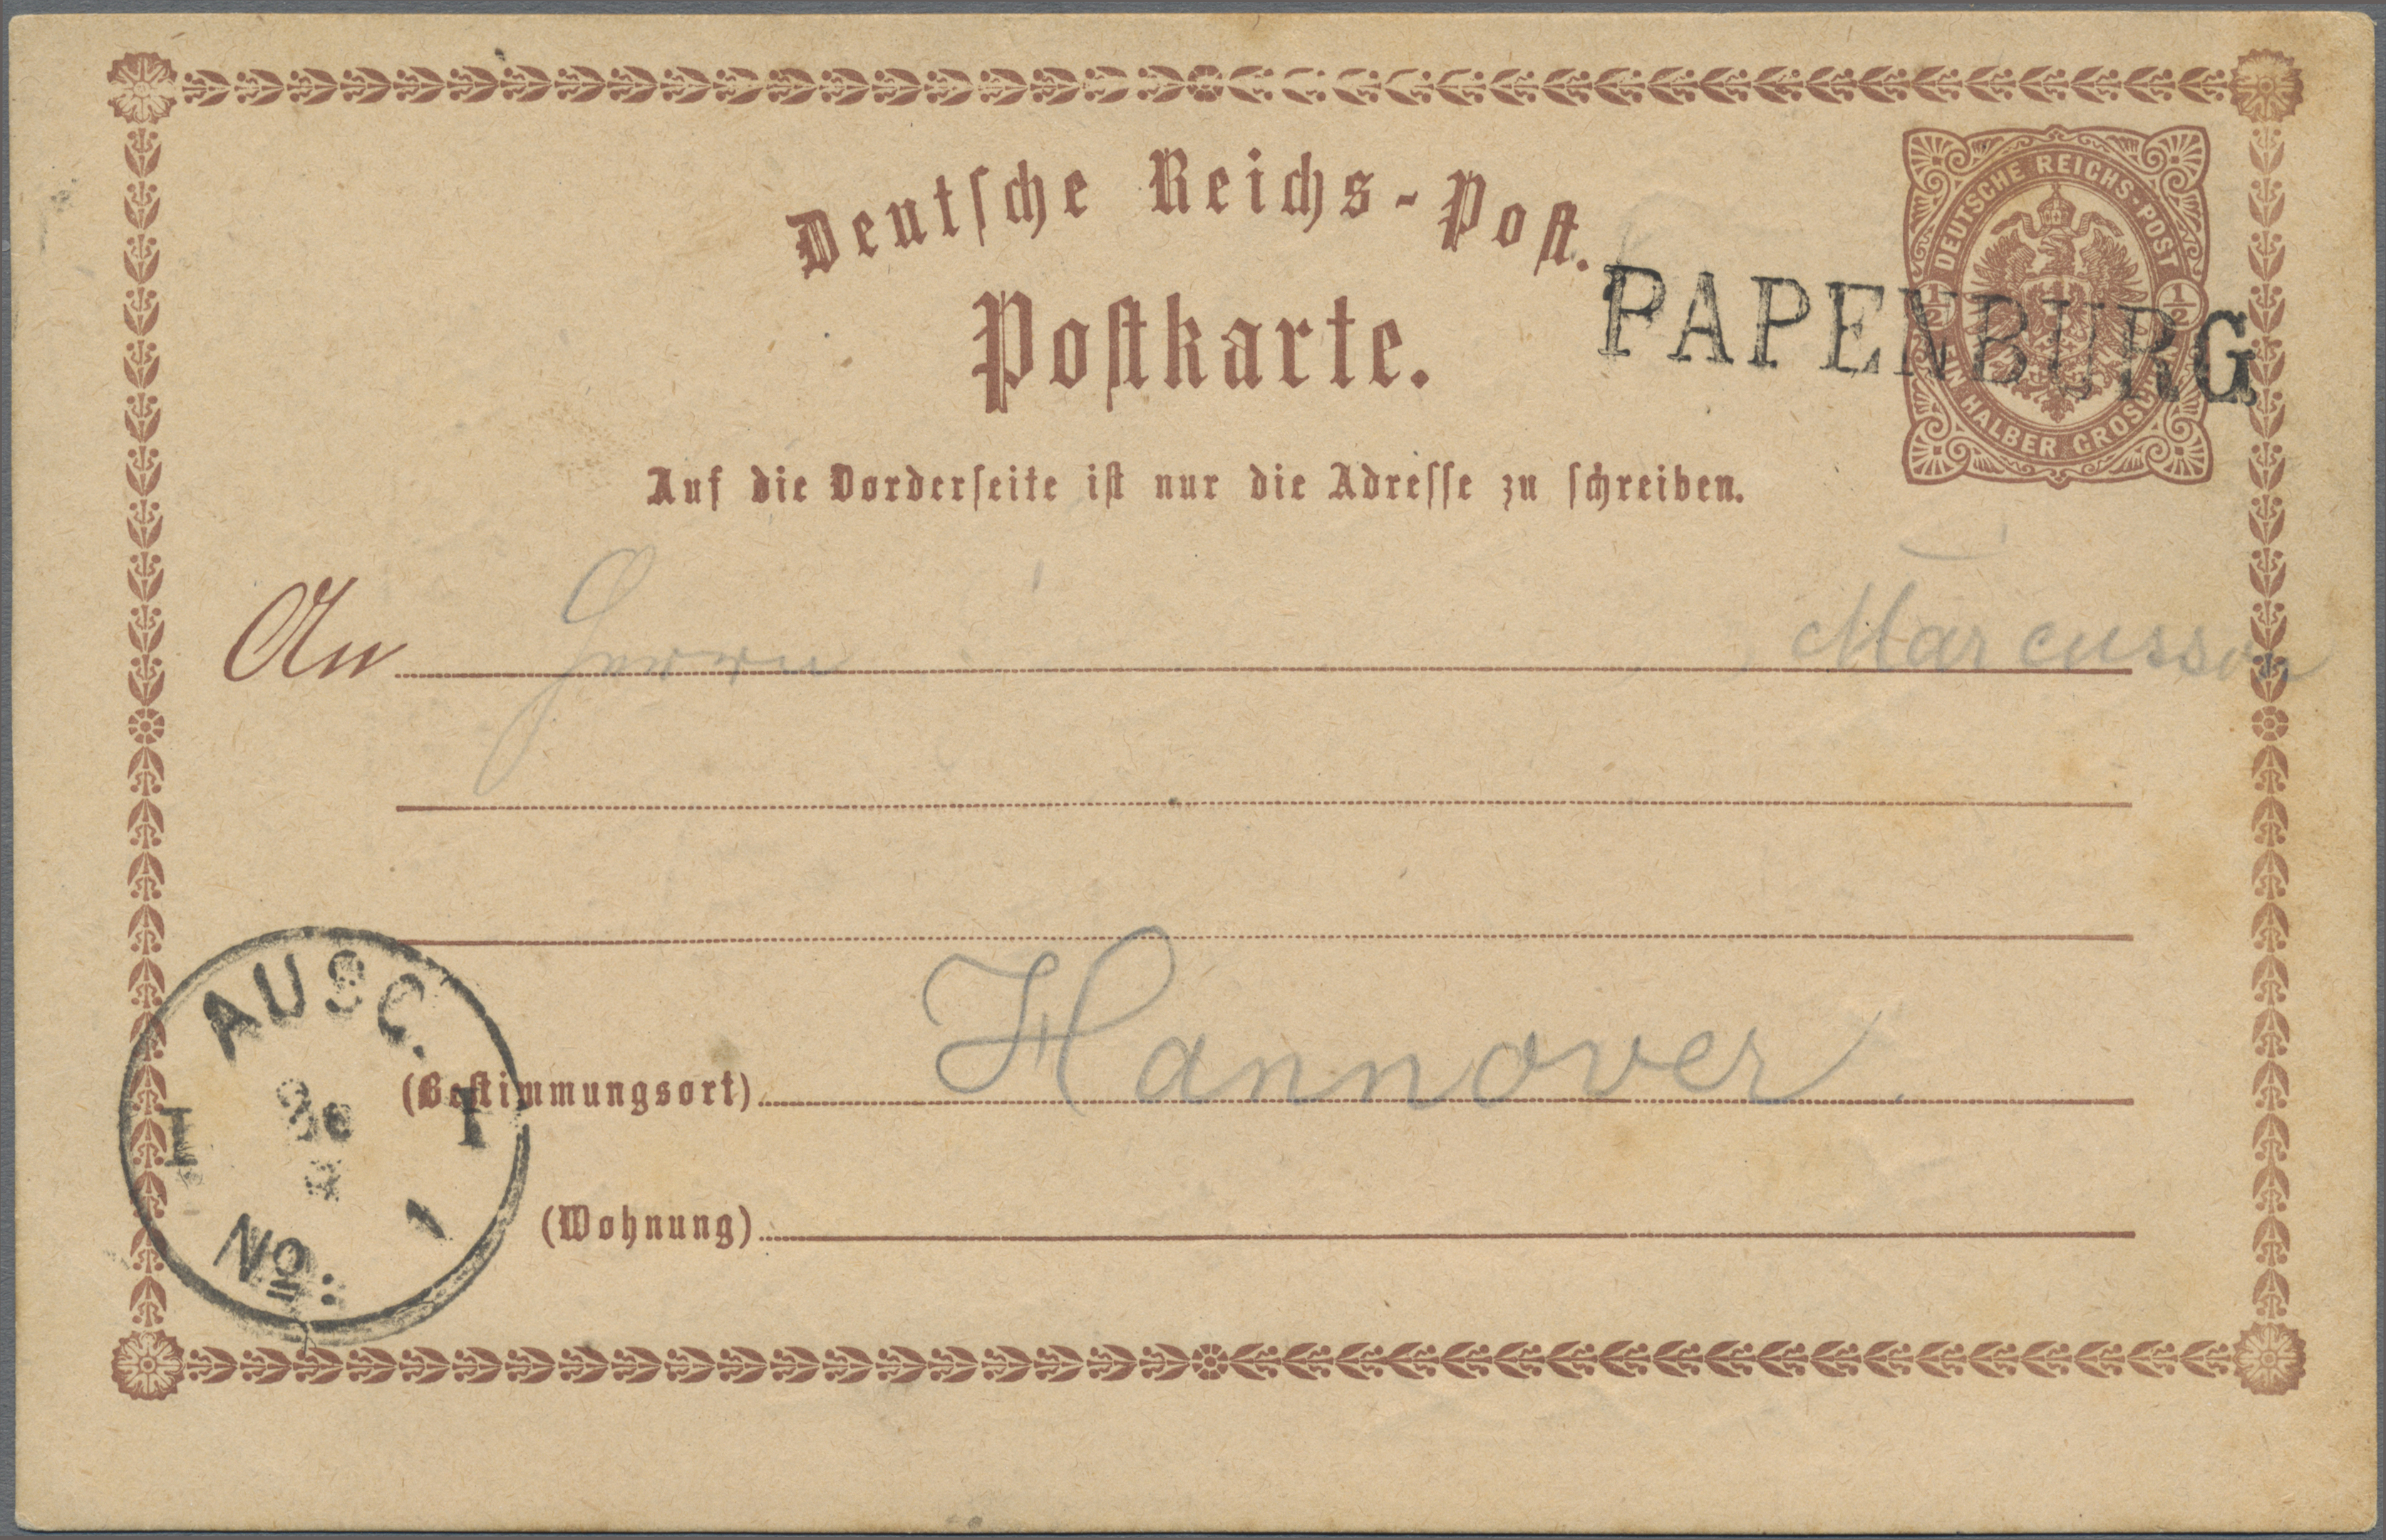 Deutsche Reichs-Post.
DEUTSCHE REICHS-POST
1/2 1/2
EIN HALBER GROSCHEN
PAPENBURG
Postkarte.
Auf die Vorderseite ist nur die Adresse zu schreiben.
An Herrn Marcusson
(Bestimmungsort) Hannover.
(Wohnung)
AUSG.
I I
No: 1